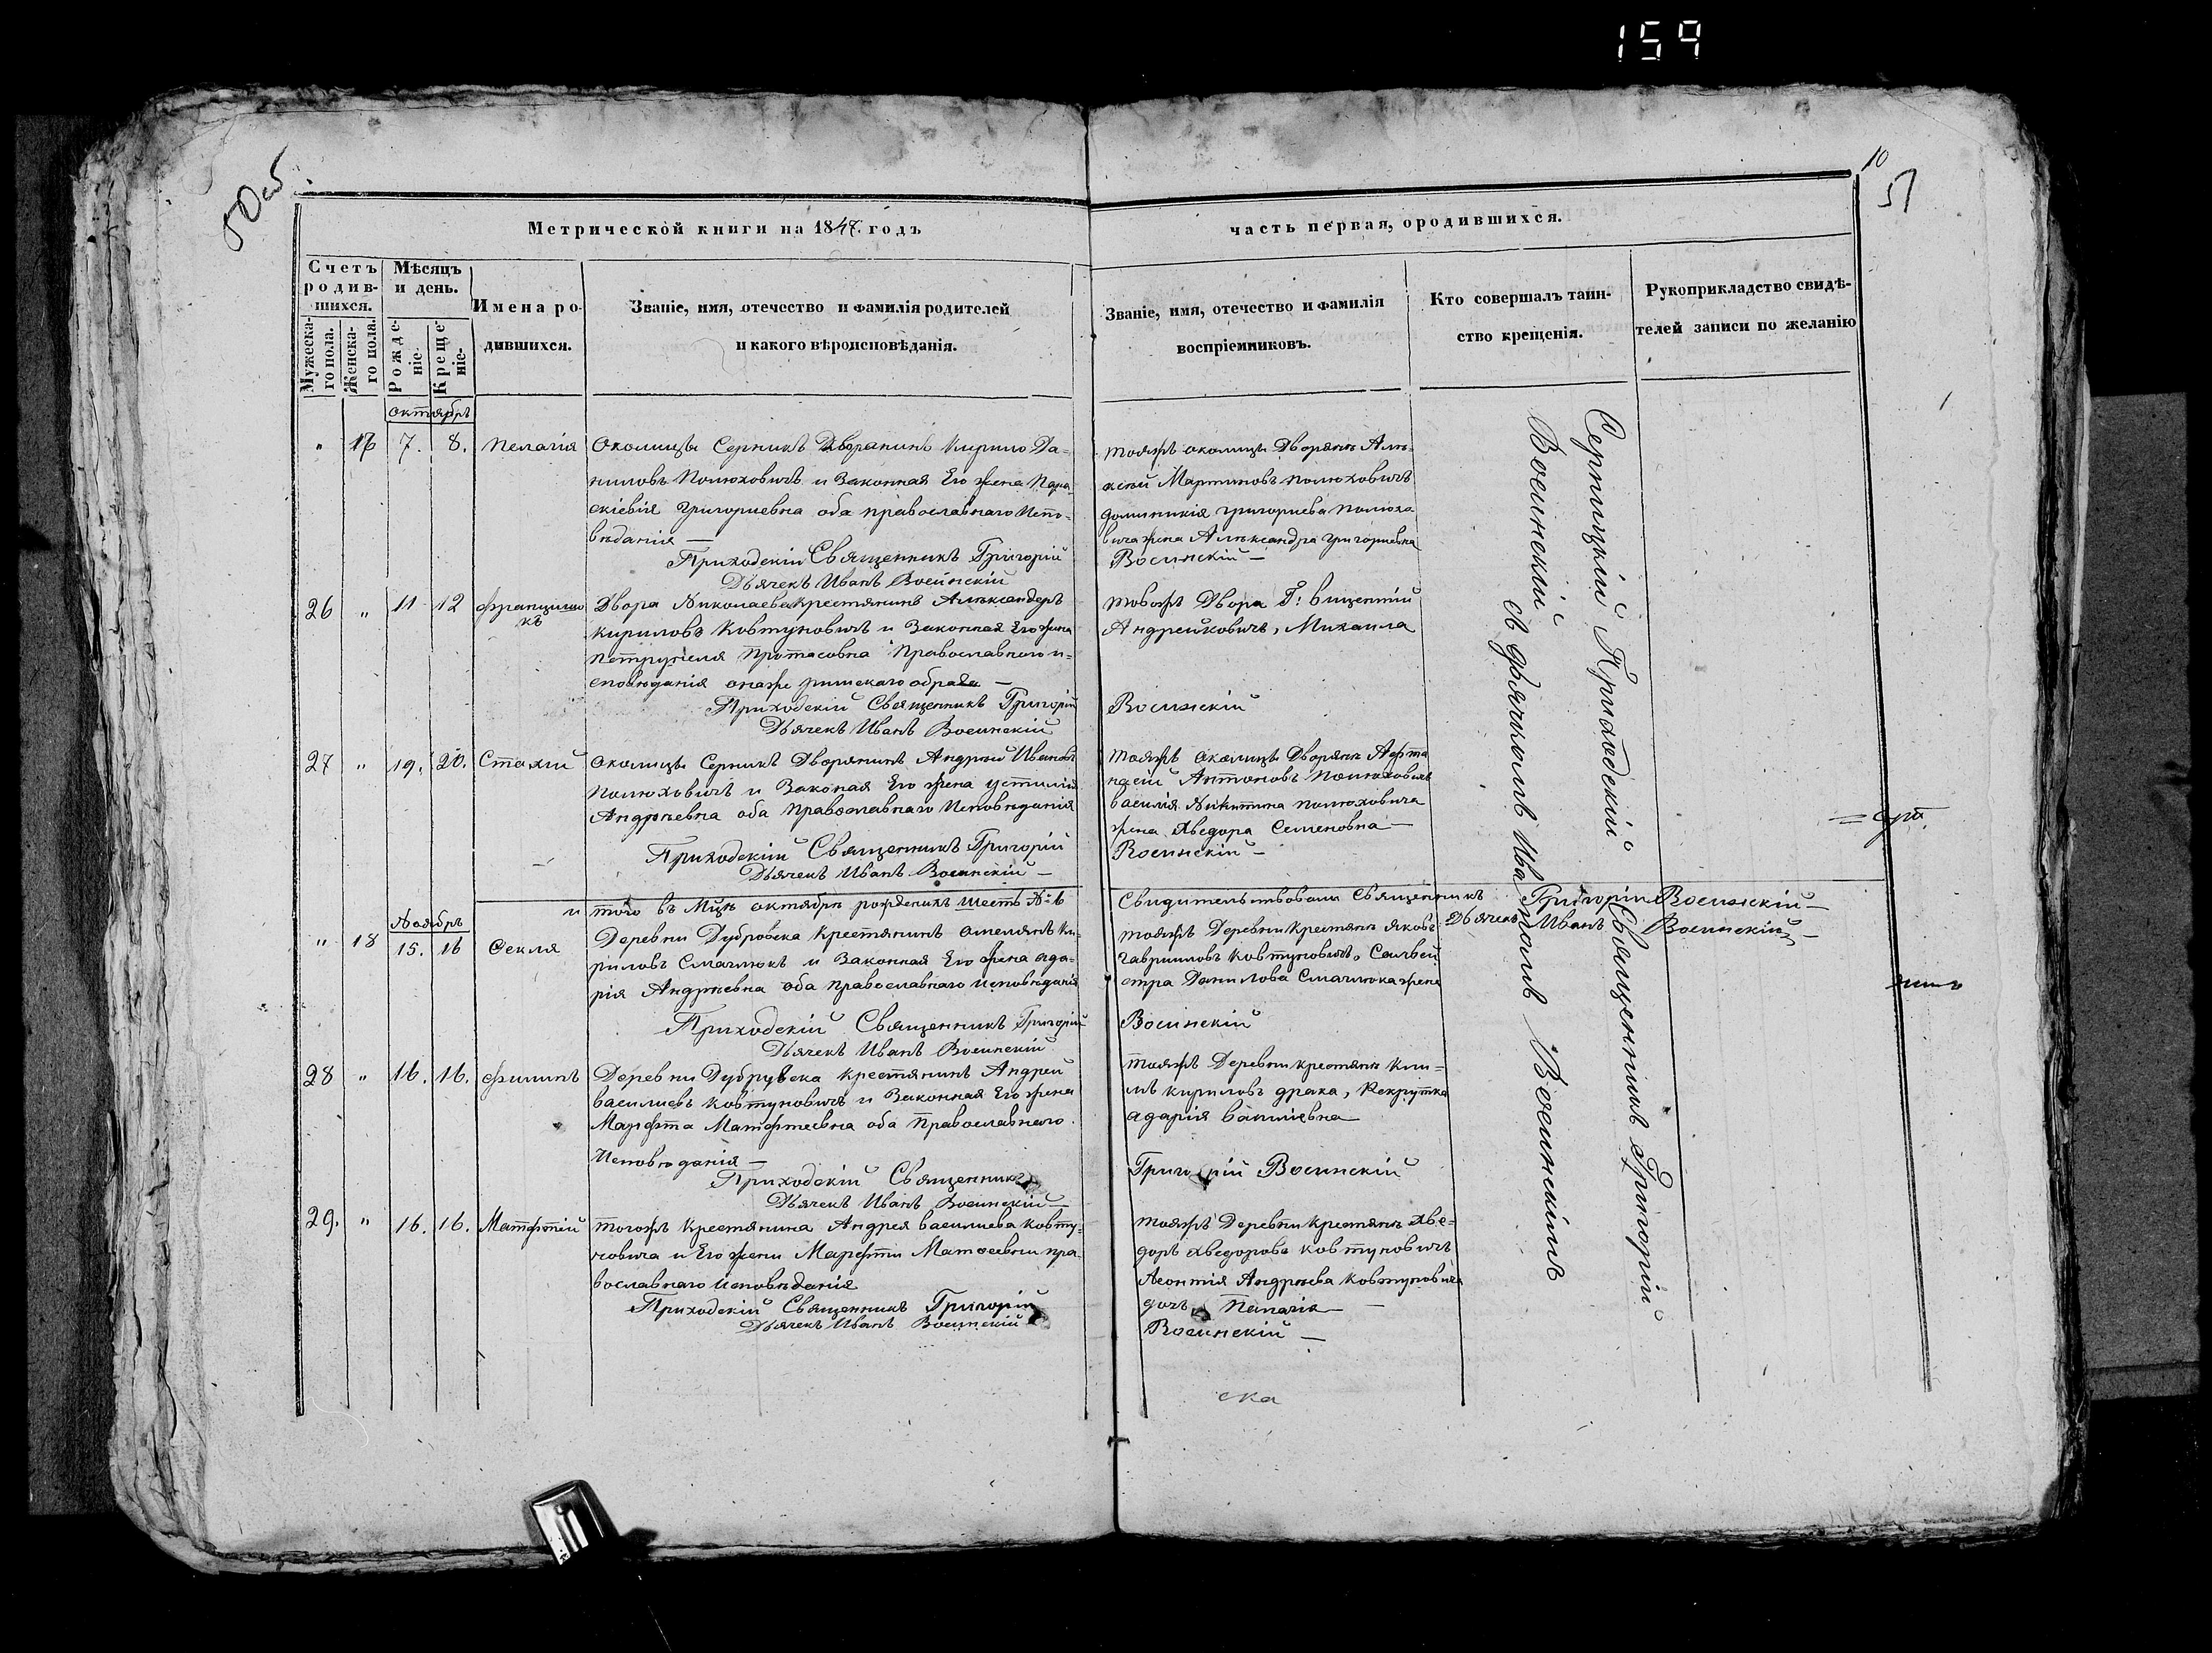 159
50об
10
51
Метрической книги на 1847. годъ
часть первая, ородившихся.
Счетъ родив-шихся.
Мужеска-го пола.
Женска-го пола.
Мѣсяцъ и день.
Рожде-ніе.
Креще-ніе.
Имена ро-
дившихся.
Званіе, имя, отечество и фамилія родителей
и какого вѣроисповѣданія.
Званіе, имя, отечество и фамилія
воспріемниковъ.
Кто совершалъ таин-
ство крещенія.
Рукоприкладство свидѣ-
телей записи по желанію
октябрь
" 7. 8. Пелагія Околицы Серникъ Дворанинъ Кирило Да-
ниловъ Полюховичъ и Законная Его жена Пара
скіевія Григориевна оба православнаго Испо-
вѣданія —
Приходскій Священникъ Григорій
Дьячекъ Иванъ Воеинскій
тояжъ околицы Дворянъ Алѣ-
ксѣй Мартиновъ Полюховичъ
доминикія григориева Полюхо
вича жена Алѣксандра григориевна
Воеинскій —
26 " 11 12 францишкъ Двора Николаева крестянинъ Алѣксандеръ
кириловъ Ковтуновичъ и Законная Его жена
Петрунеля Протасовна Православного и-
сповѣданія онаже римскаго обрада —
Приходскій Священникъ Григорій
Дьячекъ Иванъ Воеинскій
тогожъ Двора Г: вицентій
Андрейковичъ, Михаила
Воеинскій
27 " 19. 20. Стахій околицы Серникъ Дворянинъ Андрѣй Ивановъ
Полюховичъ и Законая Его жена устилія
Андрѣевна оба Православнаго Исповѣданія
Приходскій Священникъ Григорій
Дьячекъ Иванъ Воеинскій —
тояжъ околицы Дворянъ Афта
насій Антоновъ Полюховичъ
василія Никитина Полюховича
жена Хведора Семеновна —
Воеинскій —
и того въ Мцѣ октябрѣ рожденихъ шесть № 6
Свидительствовали Священникъ Григорій Воеинскій —
Дьячекъ Иванъ Воеинскій —
Ноябрь
" 18 15. 16 Секля Деревни Дубровска Крестянинъ омелянъ Ки-
риловъ Смачлюкъ и Законная Его жена ада-
рія Андрѣевна оба православнаго исповѣданія
Приходскій Священникъ Григорій
Дьячекъ Иванъ Воеинскій
тояжъ Деревни крестянъ яковъ
гавриловъ Ковтуновичъ, Сѣлвей
стра Данилова Смачлюка жена
Воеинскій
28 " 16. 16. филипъ Деревни Дубрувска крестянинъ Андрей
василиевъ Ковтуновичъ и Законная Его жена
Марфта Матфтеевна оба Православнаго
Исповѣданія —
Приходскій Священникъ
Дьячекъ Иванъ Воеинскій —
тояжъ Деревни крестянъ Кли-
мъ кириловъ драка, Рекрутка
адарія василіевна
Григорій Воеинскій
29. " 16. 16. Матфтій тогожъ крестянина Андрея василиева Ковту-
новича и Его жени Марфти Матеевни пра-
вославнаго исповѣданія
Приходскій Священникъ Григорій
Дьячекъ Иванъ Воеинскій
тояжъ Деревни крестянъ Хве-
доръ Хведоровъ Ковтуновичъ
Леонтія Андрѣева Ковтуновича
дочь Пелагія —
Воеинскій —
Серницкій Приходскій Священникъ Григорій
Воеинскій съ дьячкомъ Иваномъ Воеинскимъ
ска